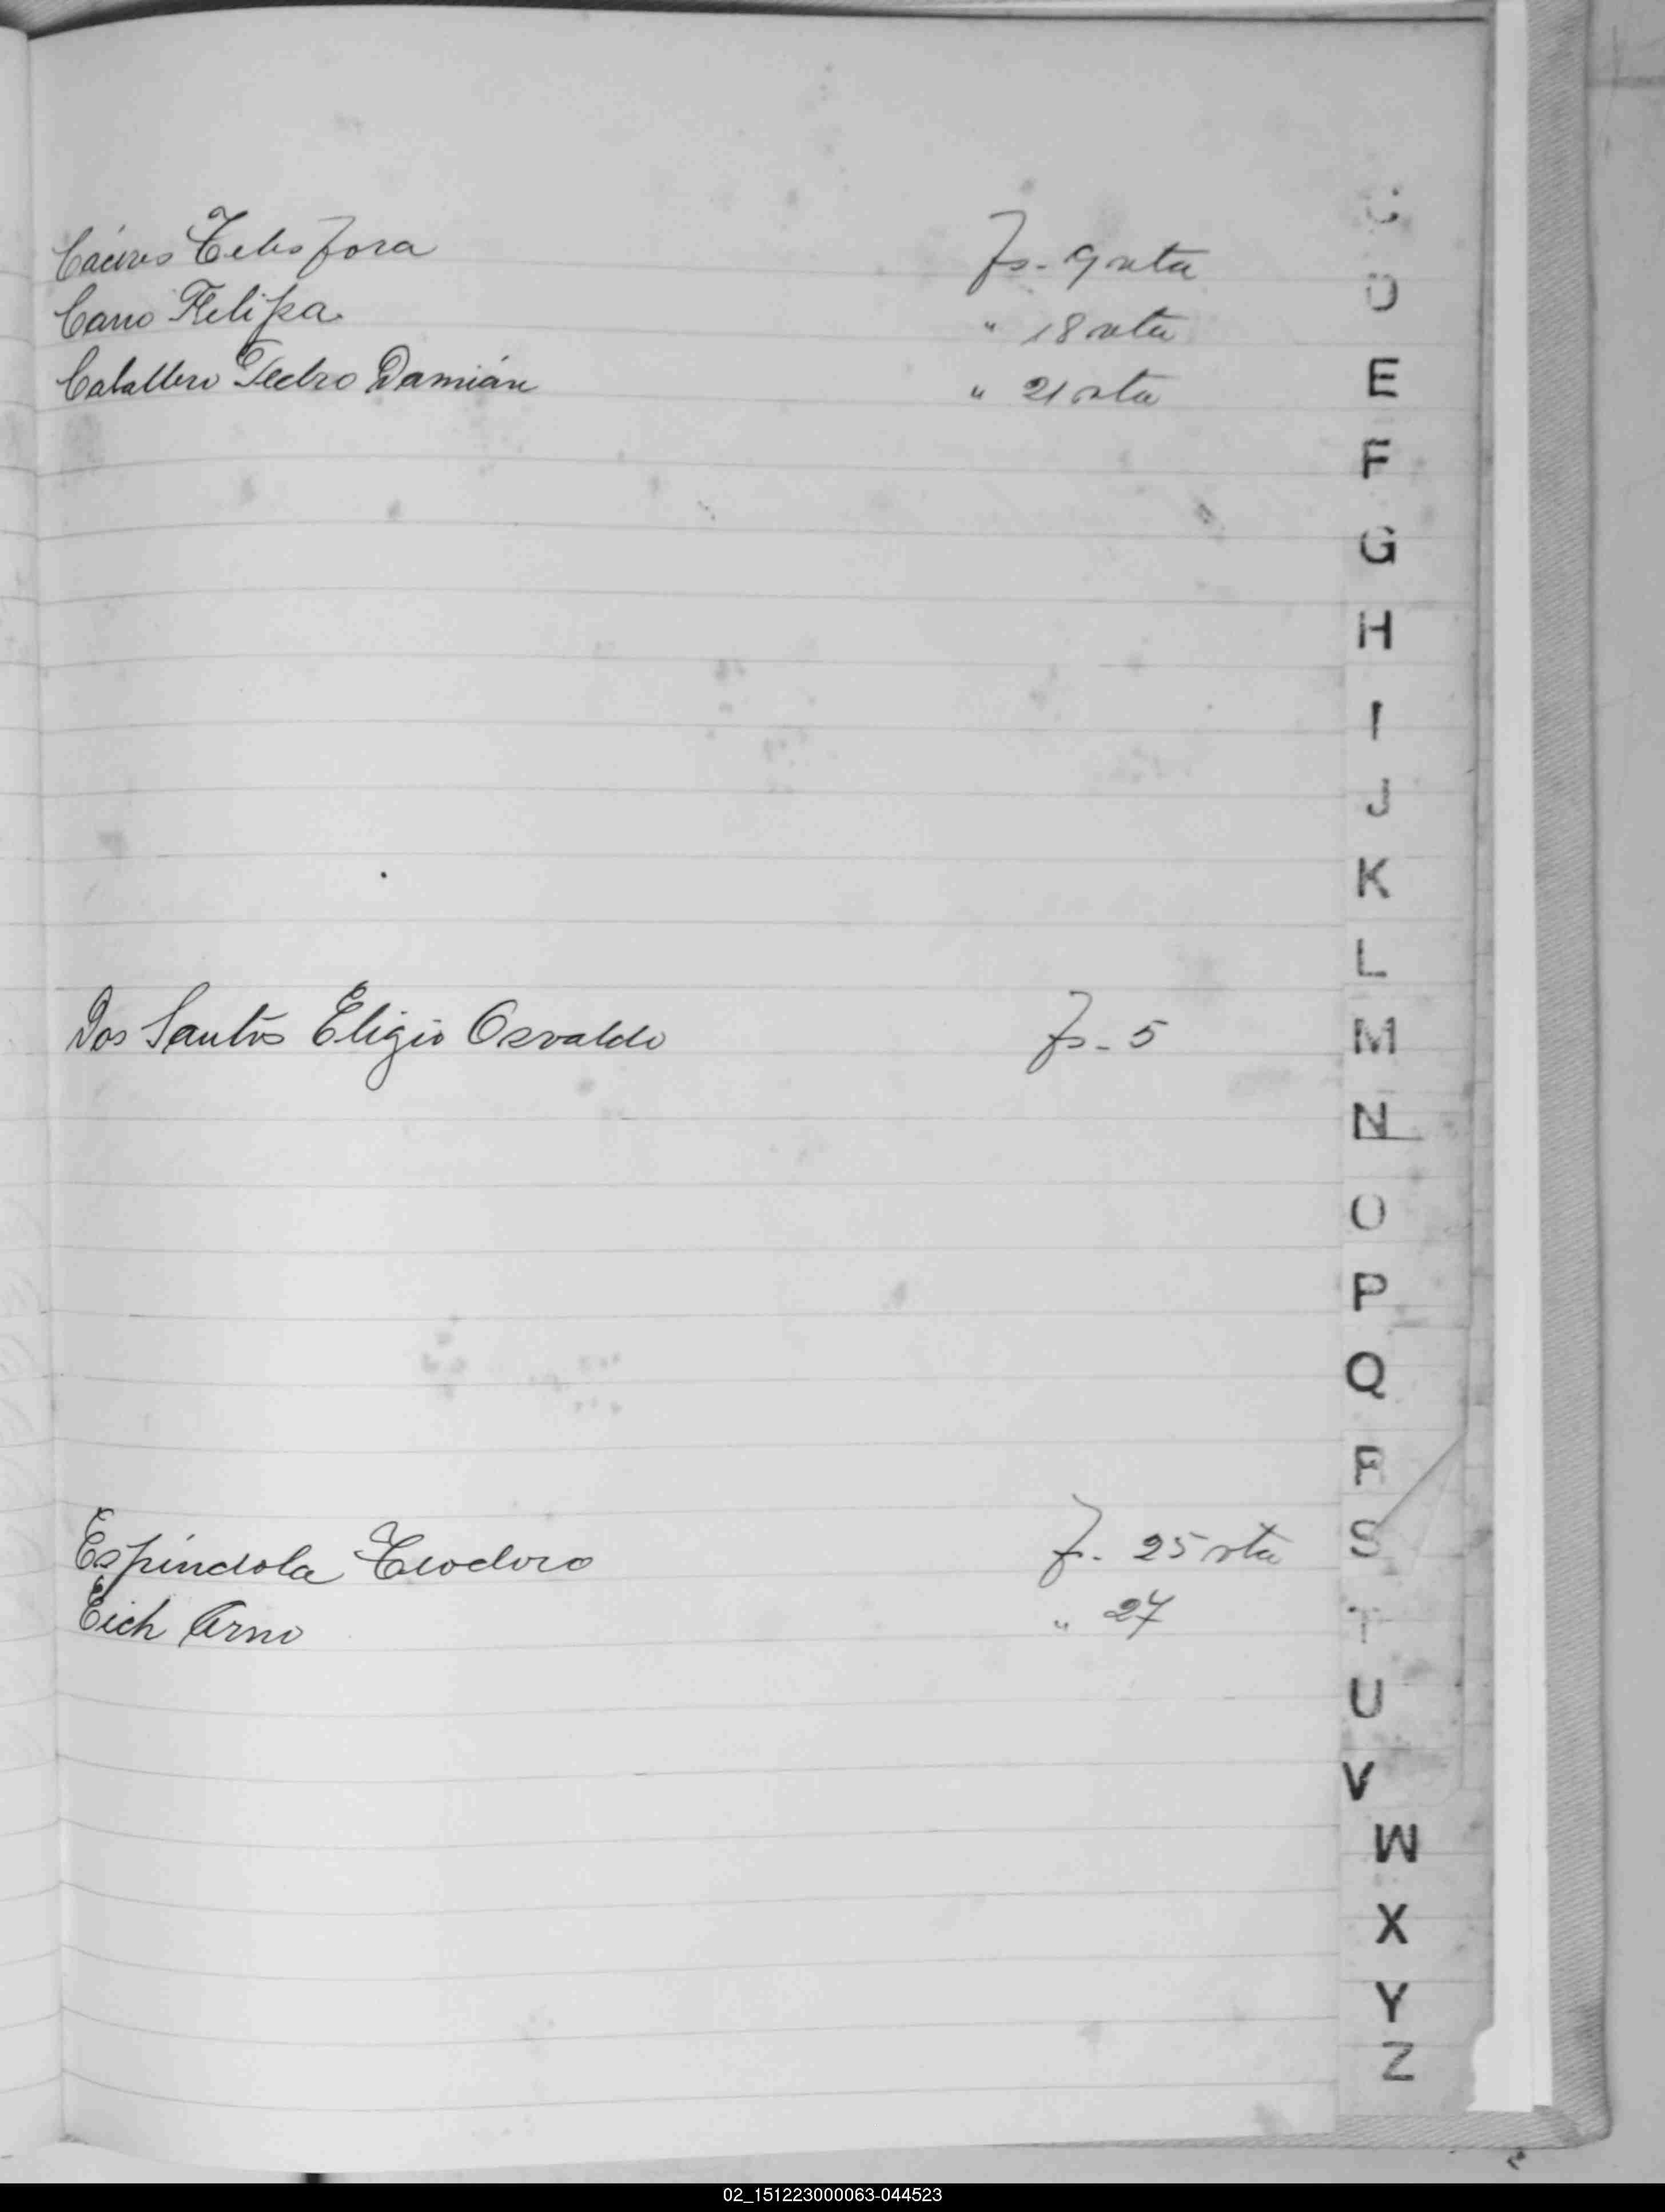 Cáceres Telesfora fs. 9 vta
Cano Felipa " 18 vta
Caballero Pedro Damián " 21 vta
Dos Santos Eligio Osvaldo fs. 5
Espíndola Teodoro f. 25 vta
Eich Arno " 27
C
D
E
F
G
H
I
J
K
L
M
N
O
P
Q
R
S
T
U
V
W
X
Y
Z
02_151223000063-044523